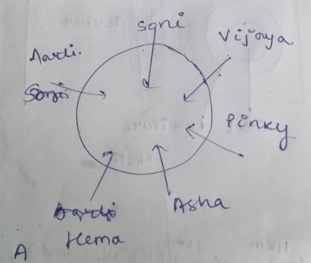 Soni
Vijaya
Aarti.
Soni
Pinky
Asha
Aarti
Hema
A